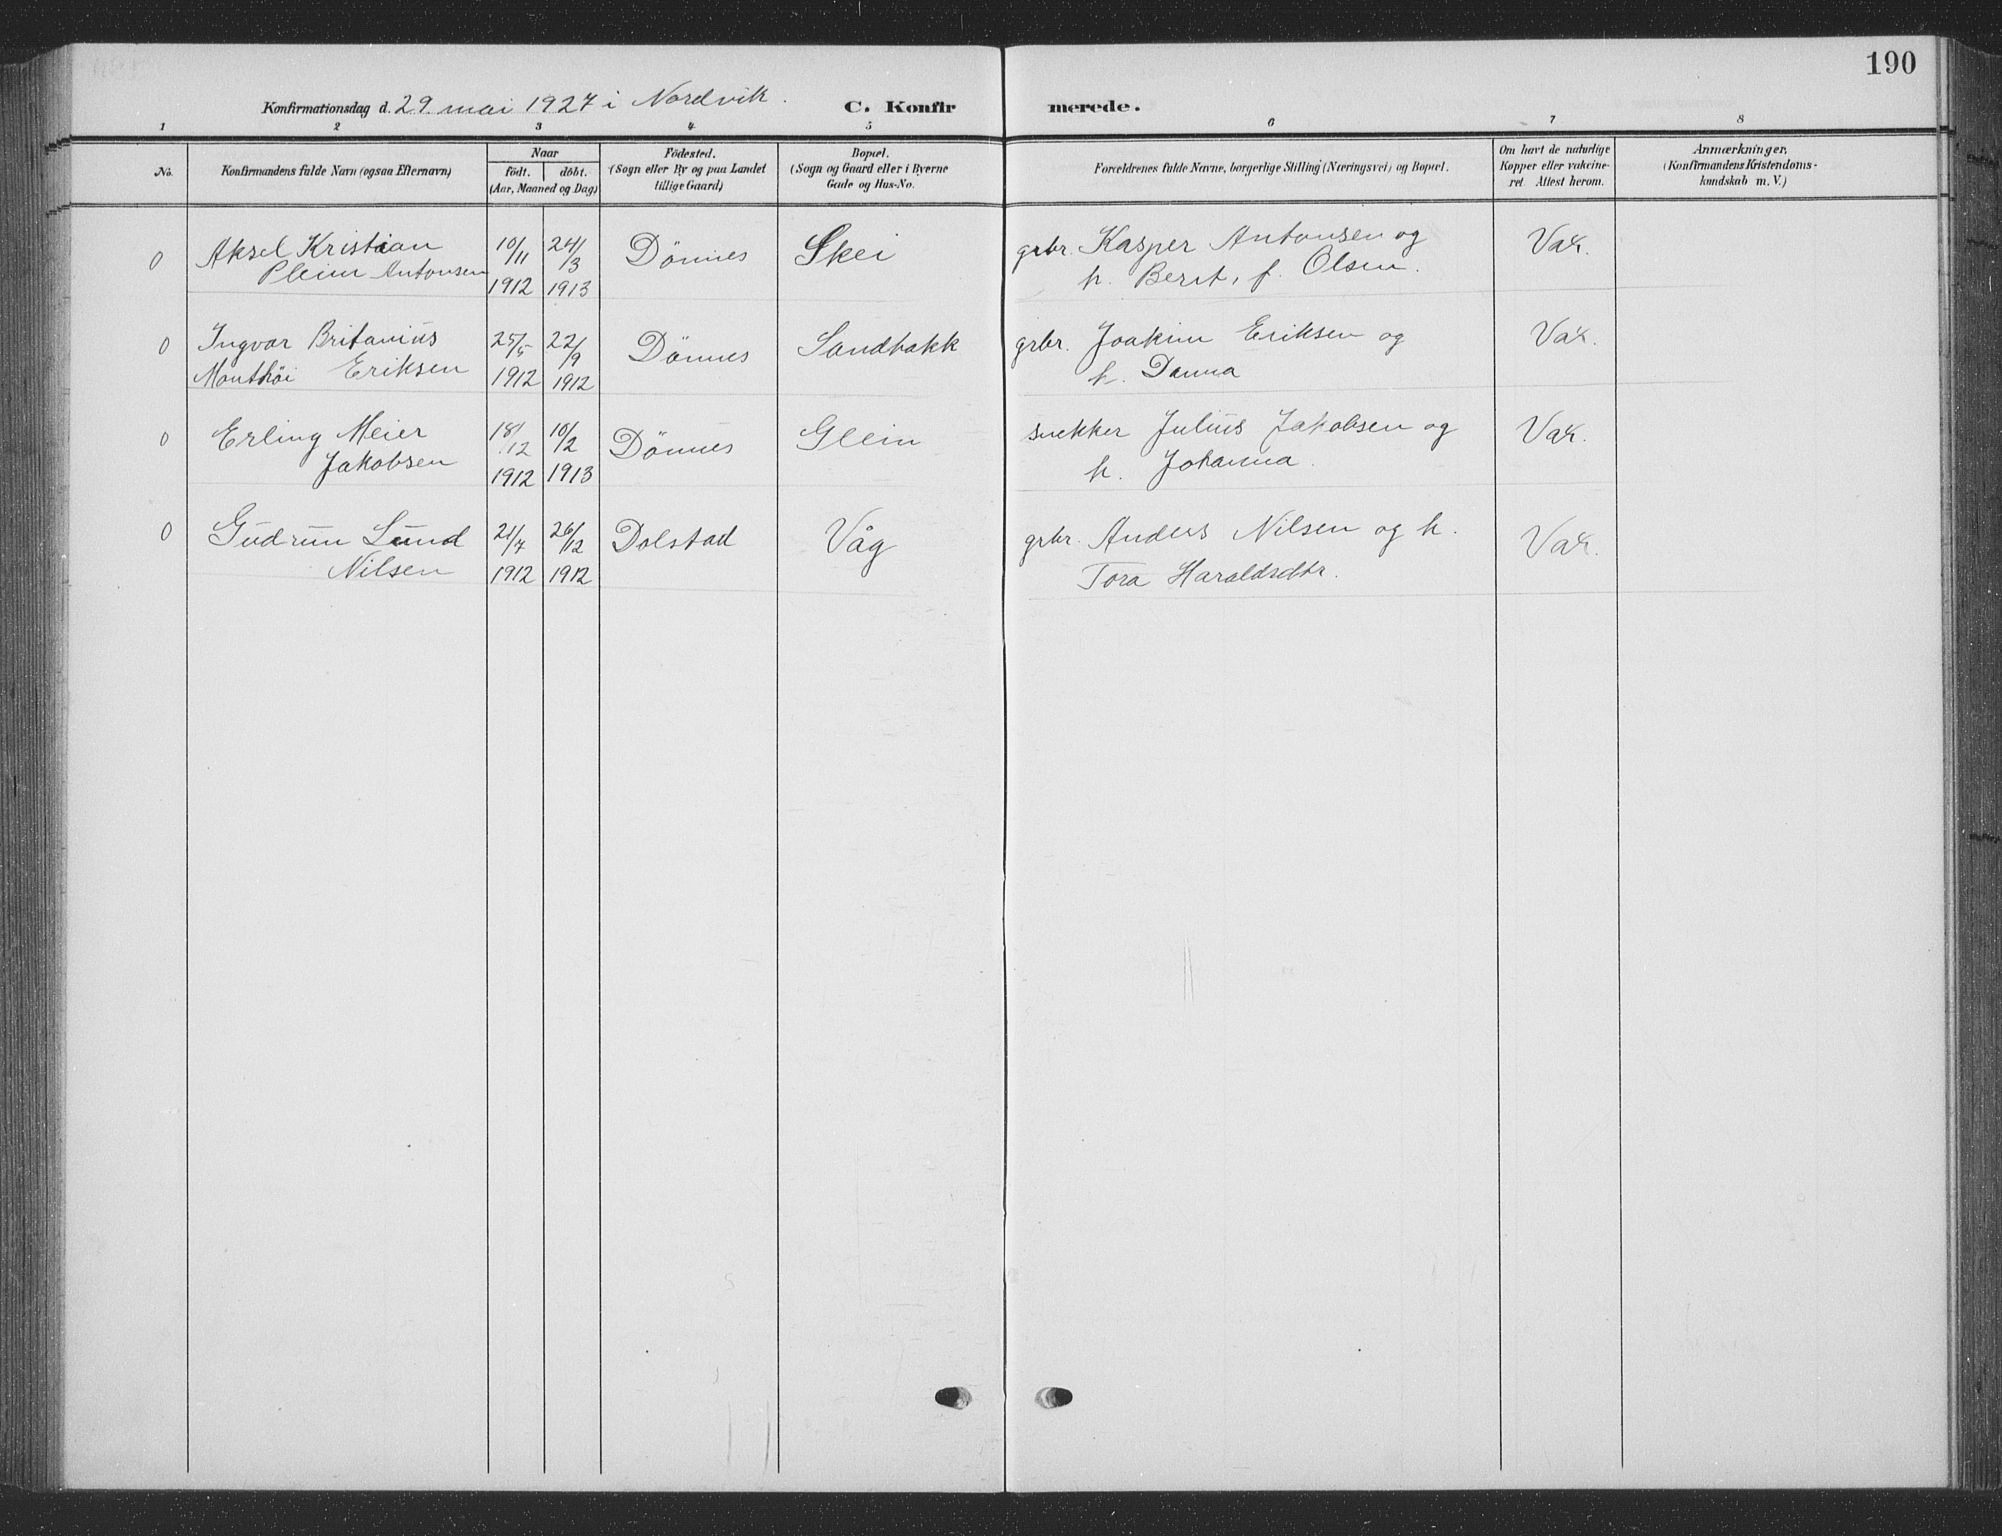 190
Konfirmationsdag d. 29. mai 1927 i Nordvik. C. Konfirmerede.
1 2 3 4 5 6 7 8
No.
Konfirmandens fulde Navn (ogsaa Efternavn)
Naar
födt. döbt.
(Aar, Maaned og Dag)
Födested.
(Sogn eller By og paa Landet
tillige Gaard)
Bopæl.
(Sogn og Gaard eller i Byerne
Gade og Hus-No.
Forældrenes fulde Navne, borgerlige Stilling (Næringsvei) og Bopæl.
Om havt de naturlige
Kopper eller vakcine-
ret. Attest herom.
Anmærkninger,
(Konfirmandens Kristendoms-
kundskab m. V.)
0 Aksel Kristian 10/11 24/3 Dönnes Skei grbr. Kasper Antonsen og Vax.
Pleim Antonsen 1912 1913 h. Berit, f. Olsen.
0 Ingvar Britanius 25/5 22/9 Dönnes Sandbakk grbr. Joakim Eriksen og Vax.
Eriksen 1912 1912 h. Danna
0 Erling Meier 18/12 10/2 Dönnes Glein snekker Julius Jakobsen og Vax.
Jakobsen 1912 1913 h. Johanna.
0 Gudrun Lund 21/7 26/12 Dolstad Våg grbr. Anders Nilsen og h. Vax.
Nilsen 1912 1912 Tora Haraldsdtr.